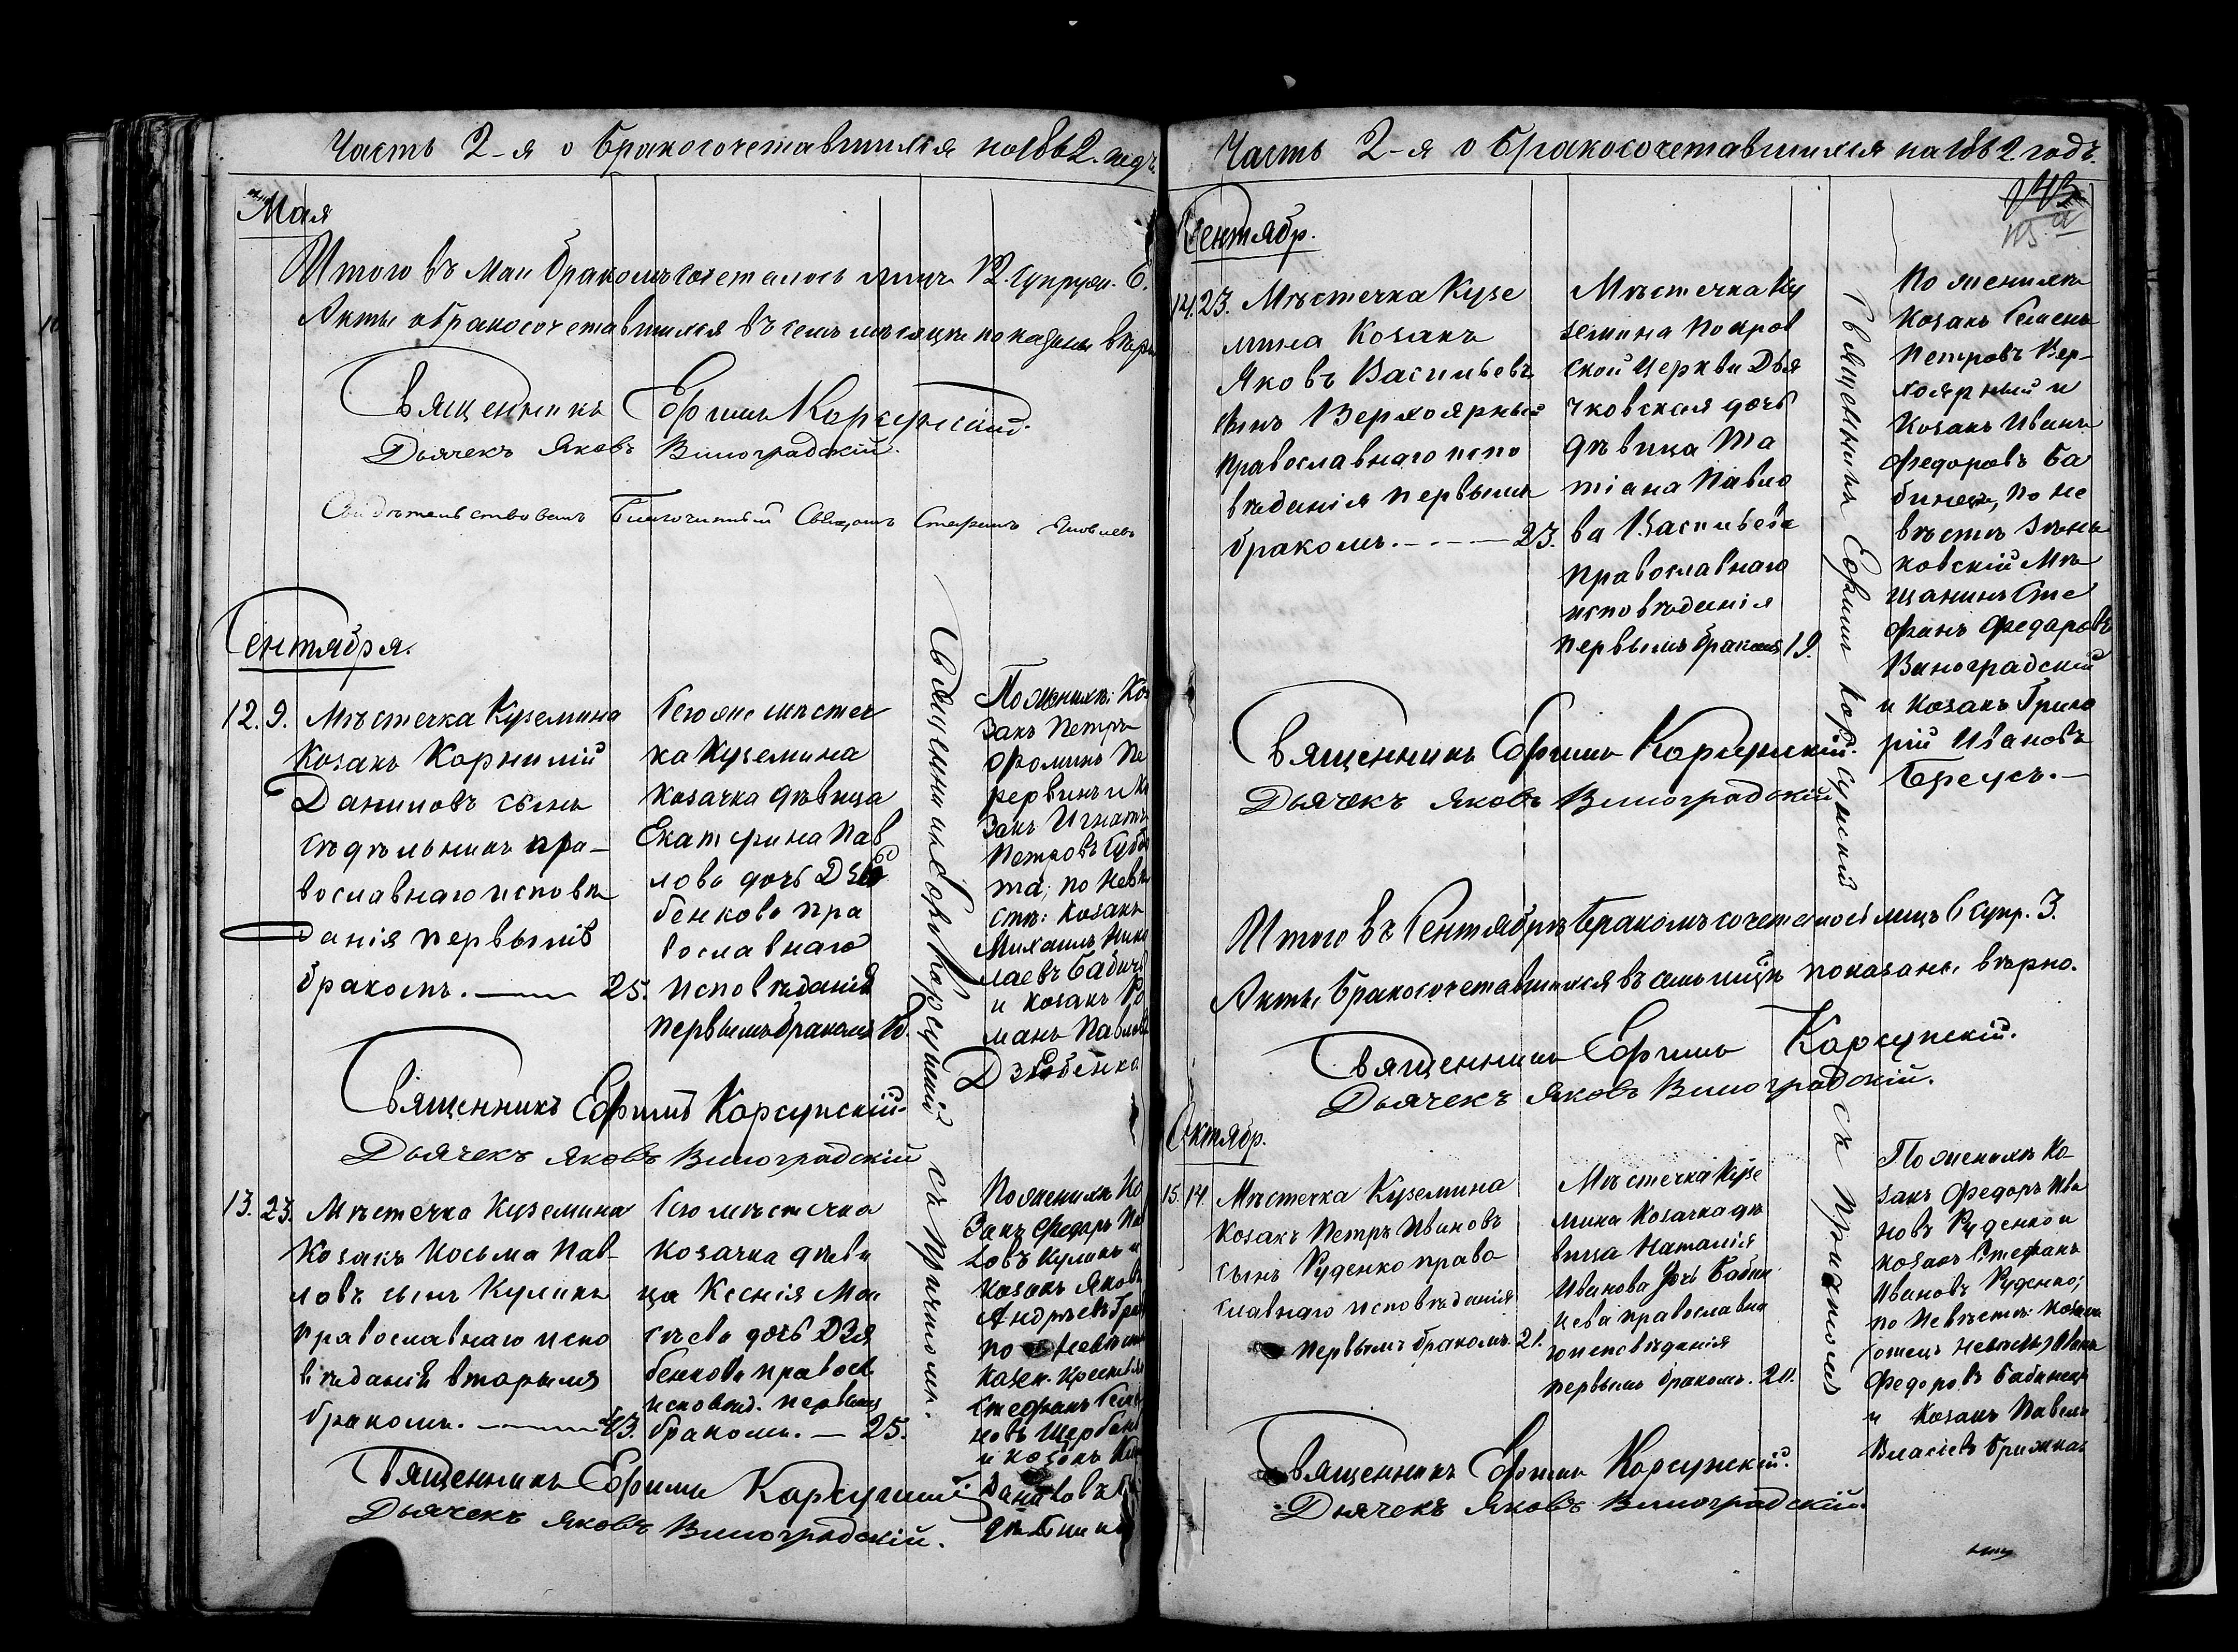 Часть 2-я о бракосочетавшихся на 1862 годъ.
Мая
Итого въ Маи бракомъ сочеталось лицъ 12. супруж. 6.
Акты о бракосочетавшихся въ семъ месяце показаны верно
Священникъ Ефимъ Корсунскій.
Дьячекъ Яковъ Виноградскій.
Свидѣтельствовалъ Благочинный Священ. Стефанъ
Сентября.
12. 9. Мѣстечка Куземина
Козакъ Корнилій
Даниловъ сынъ
Сѣдѣльникъ пра-
вославнаго исповѣ
данія первымъ
бракомъ. — 25.
Того же мѣстеч
ка Куземина
козачка дѣвица
Екатерина Пав
лова дочь Дзю
бенкова пра
вославнаго
исповѣданія
первымъ бракомъ 18.
Священникъ Ефимъ Корсунскій съ причтомъ.
По женихѣ: Ко
закъ Петръ
Фоминъ Пе
рервинъ и Ко
закъ Игнатъ
Петровъ Субо
та; по невѣ
стѣ: Козакъ
Михаилъ Нико
лаевъ Бабичъ
и козакъ Ро
манъ Павловъ
Дзюбенко
Священникъ Ефимъ Корсунскій.
Дьячекъ Яковъ Виноградскій
13. 23. Мѣстечка Куземина
Козакъ Косьма Пав-
ловъ сынъ Куликъ
православнаго испо
вѣданія вторымъ
бракомъ. — 43.
Того мѣстечка
козачка дѣви
ца Ксенія Мои
сѣева дочь Дзю
бенкова правосл.
исповѣд. первымъ
бракомъ. — 25.
По женихѣ Ко
закъ Федоръ Пав
ловъ Куликъ и
козакъ Яковъ
Андрѣевъ
по невѣстѣ
казен. крестьян.
Стефанъ
новъ Щербакъ
и козакъ
Священникъ Ефимъ Корсунскій
Дьячекъ Яковъ Виноградскій.
Часть 2-я о бракосочетавшихся на 1862 годъ.
143
Сентябр.
14. 23. Мѣстечка Кузе
мина Козакъ
Яковъ Васильевъ
сынъ Верхоярный
православнаго испо
вѣданія первымъ
бракомъ. — 23.
Мѣстечка Ку
земина Покров
ской Церкви Дья
чковская дочь
дѣвица Та
тіана Павло
ва Васильева
православнаго
исповѣданія
первымъ бракомъ 19.
Священникъ Ефимъ Корсунскій съ причтомъ
По женихѣ
Козакъ Семенъ
Петровъ Вер-
хоярный и
Козакъ Иванъ
Федоровъ Ба
бинецъ, по не
вѣстѣ Зѣнь
ковскій Мѣ
щанинъ Сте
фанъ Федоровъ
Виноградскій
и Козакъ Григо
рій Ивановъ
Бреусъ. —
Священникъ Ефимъ Корсунскій.
Дьячекъ Яковъ Виноградскій
Итого въ Сентябрѣ бракомъ сочеталось лицъ 6 супр. 3.
Акты бракосочетавшихся въ семъ мцѣ показаны вѣрно.
Священникъ Ефимъ Корсунскій.
Дьячекъ Яковъ Виноградскій.
Октябр.
15. 14. Мѣстечка Куземина
Козакъ Петръ Ивановъ
сынъ Руденко право
славнаго исповѣданія
первымъ бракомъ. 21.
Мѣстечка Кузе
мина Козачка дѣ
вица Наталія
Иванова дочь Бабин
цева православна
го исповѣданія
первымъ бракомъ. 20.
По женихѣ Ко
закъ Федоръ Ива
новъ Руденко и
козакъ Стефанъ
Ивановъ Руденко;
по невѣстѣ
отецъ невѣсты Иванъ
Федоровъ Бабинецъ
и Козакъ Павелъ
Власіевъ Брижка
Священникъ Ефимъ Корсунскій.
Дьячекъ Яковъ Виноградскій.